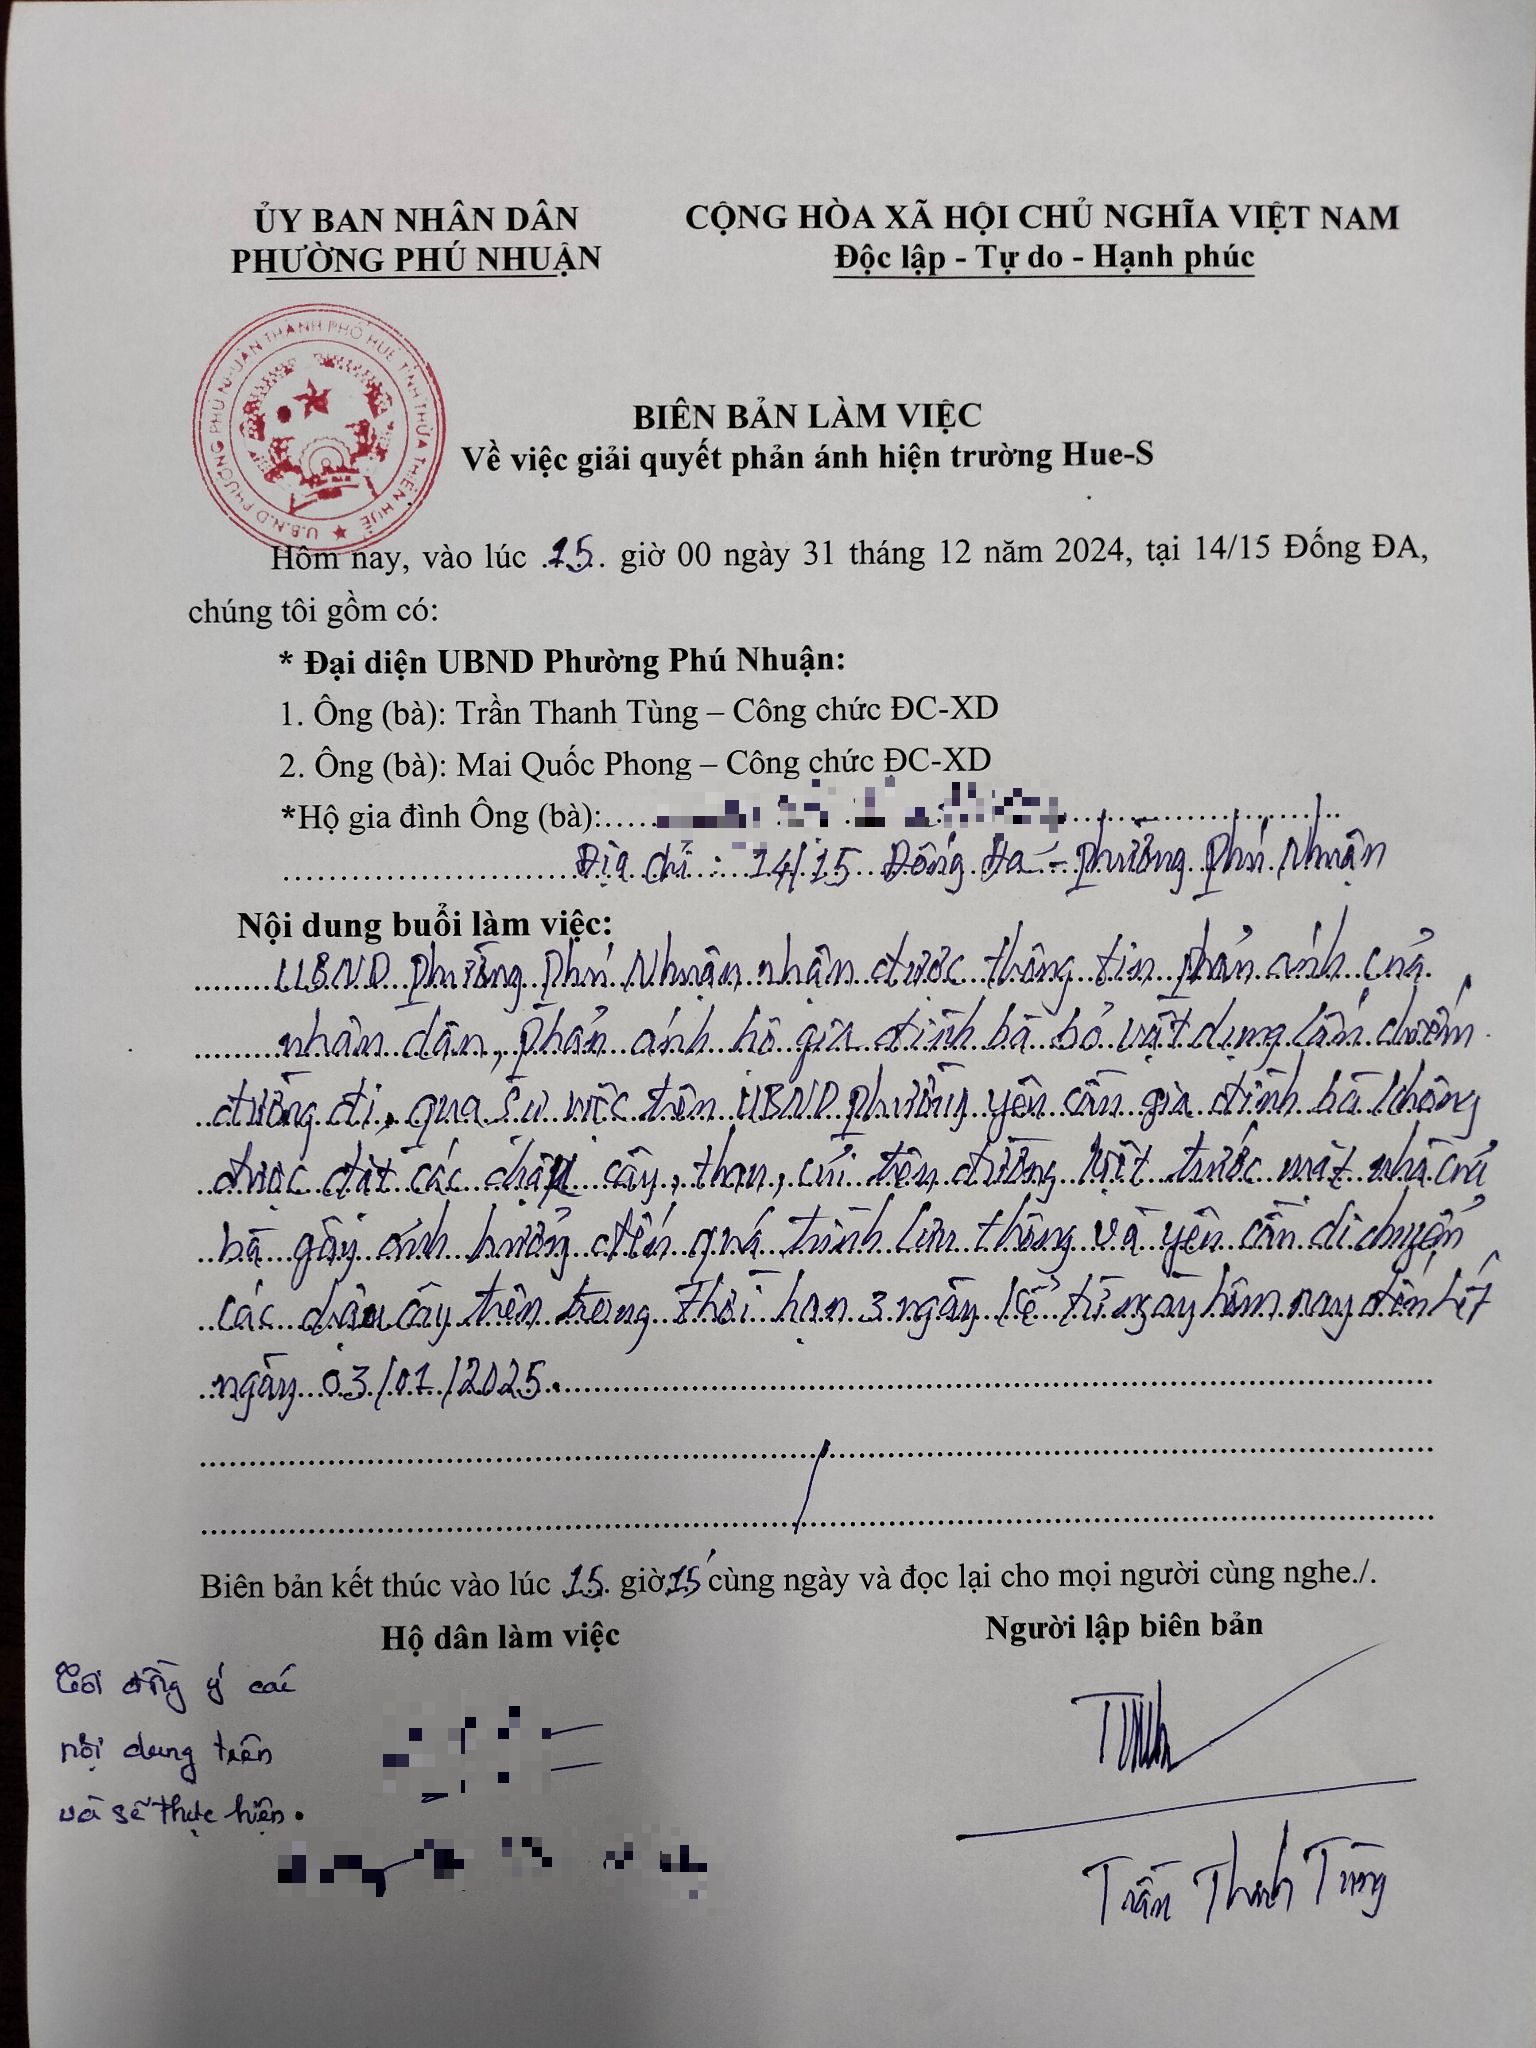 ỦY BAN NHÂN DÂN
PHƯỜNG PHÚ NHUẬN
CỘNG HÒA XÃ HỘI CHỦ NGHĨA VIỆT NAM
Độc lập - Tự do - Hạnh phúc
U.B.N.D PHƯỜNG PHÚ NHUẬN THÀNH PHỐ HUẾ TỈNH THỪA THIÊN HUẾ
BIÊN BẢN LÀM VIỆC
Về việc giải quyết phản ánh hiện trường Hue-S
Hôm nay, vào lúc 15 giờ 00 ngày 31 tháng 12 năm 2024, tại 14/15 Đống ĐA,
chúng tôi gồm có:
* Đại diện UBND Phường Phú Nhuận:
1. Ông (bà): Trần Thanh Tùng – Công chức ĐC-XD
2. Ông (bà): Mai Quốc Phong – Công chức ĐC-XD
*Hộ gia đình Ông (bà):
Địa chỉ : 14/15 Đống Đa - Phường Phú Nhuận
Nội dung buổi làm việc:
UBND Phường Phú Nhuận nhận được thông tin phản ánh của
nhân dân, phản ánh hộ gia đình bà bỏ vật dụng lấn chiếm
đường đi, qua sự việc trên UBND phường yêu cầu gia đình bà không
được đặt các chậu cây, than, củi trên đường kiệt trước mặt nhà của
bà gây ảnh hưởng đến quá trình lưu thông và yêu cầu di chuyển
các chậu cây trên trong thời hạn 3 ngày kể từ ngày hôm nay đến hết
ngày 03/01/2025.
Biên bản kết thúc vào lúc 15 giờ 15' cùng ngày và đọc lại cho mọi người cùng nghe./.
Hộ dân làm việc
Người lập biên bản
Tôi đồng ý các
nội dung trên
và sẽ thực hiện.
Trần Thanh Tùng